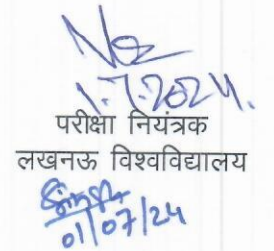 1.7.2024.
परीक्षा नियंत्रक
लखनऊ विश्वविद्यालय
01/07/24